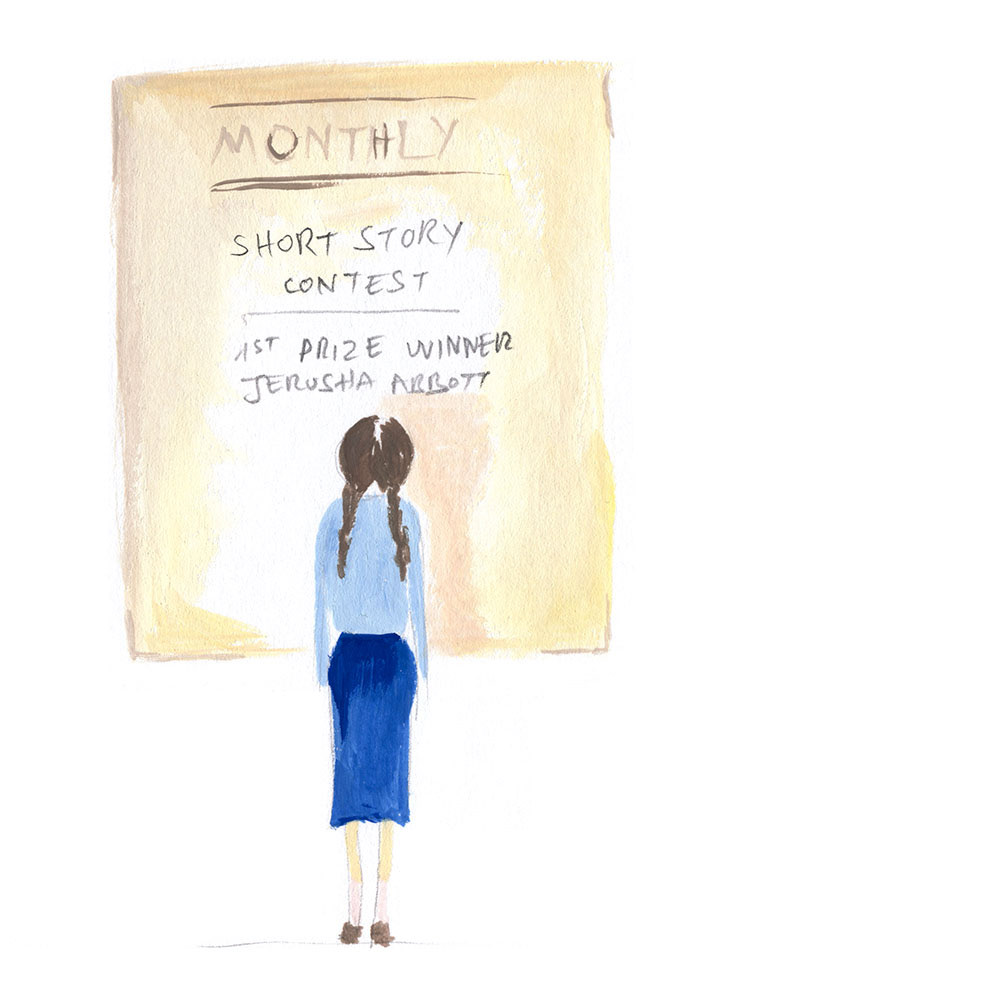 MONTHLY
SHORT STORY
CONTEST
1ST PRIZE WINNER
JERUSHA ABBOTT